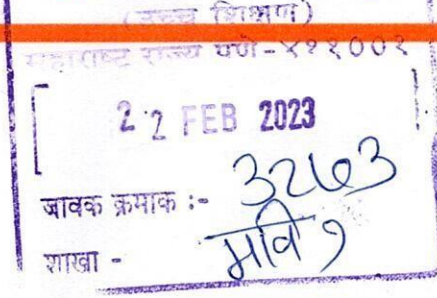 (उच्च शिक्षण)
महाराष्ट्र राज्य पुणे-४११००१
22 FEB 2023
जावक क्रमांक :- 3263
शाखा - मवि १